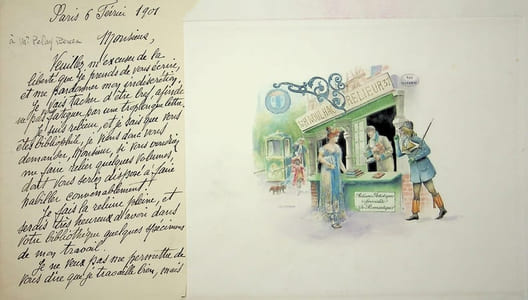 Paris 6 Février 1901
à Mr Pelay
Monsieur,
Veuillez m'excuser de la
liberté que je prends de vous écrire,
et me pardonner mon indiscrétion.
Je vais tâcher d'être bref, afin de
pas fatiguer par une trop longue lettre.
Je suis relieur, et je sais que vous
êtes bibliophile, je viens donc vous
demander, Monsieur, si vous voudriez
me faire relier quelques volumes,
dont vous seriez disposé à faire
habiller convenablement!
Je fais la reliure pleine, et
serais très heureux d'avoir dans
votre bibliothèque quelques spécimens
de mon travail.
Je ne veux pas me permettre de
vous dire que je travaille bien, mais
RELIEUR
Reliures Artistiques
Spécialité
de Romantiques